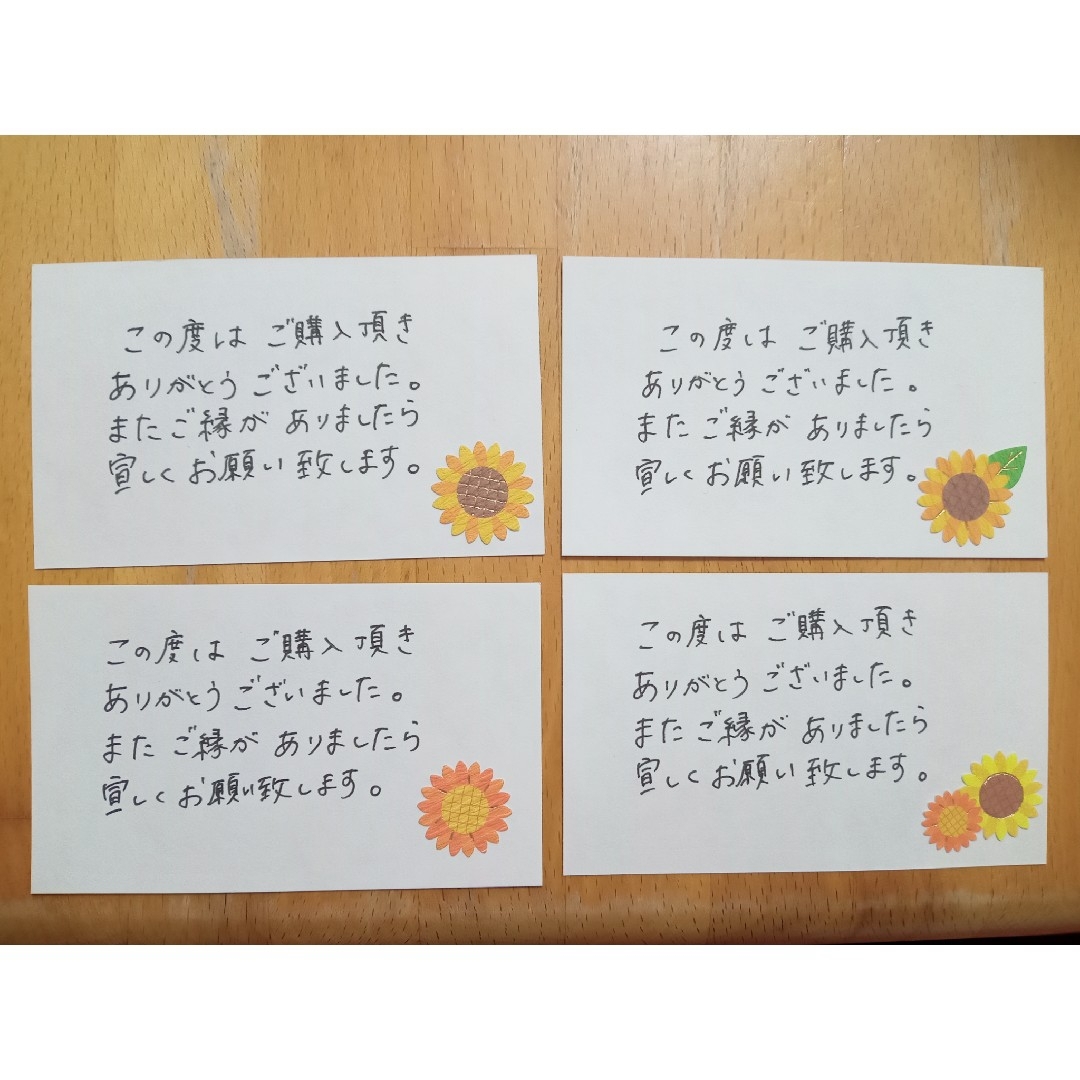 この度は ご購入頂き
ありがとう ございました。
また ご縁が ありましたら
宜しく お願い 致します。
この度は ご購入頂き
ありがとう ございました。
また ご縁が ありましたら
宜しく お願い 致します。
この度は ご購入頂き
ありがとう ございました。
また ご縁が ありましたら
宜しく お願い致します。
この度は ご購入頂き
ありがとう ございました。
また ご縁が ありましたら
宜しく お願い 致します。